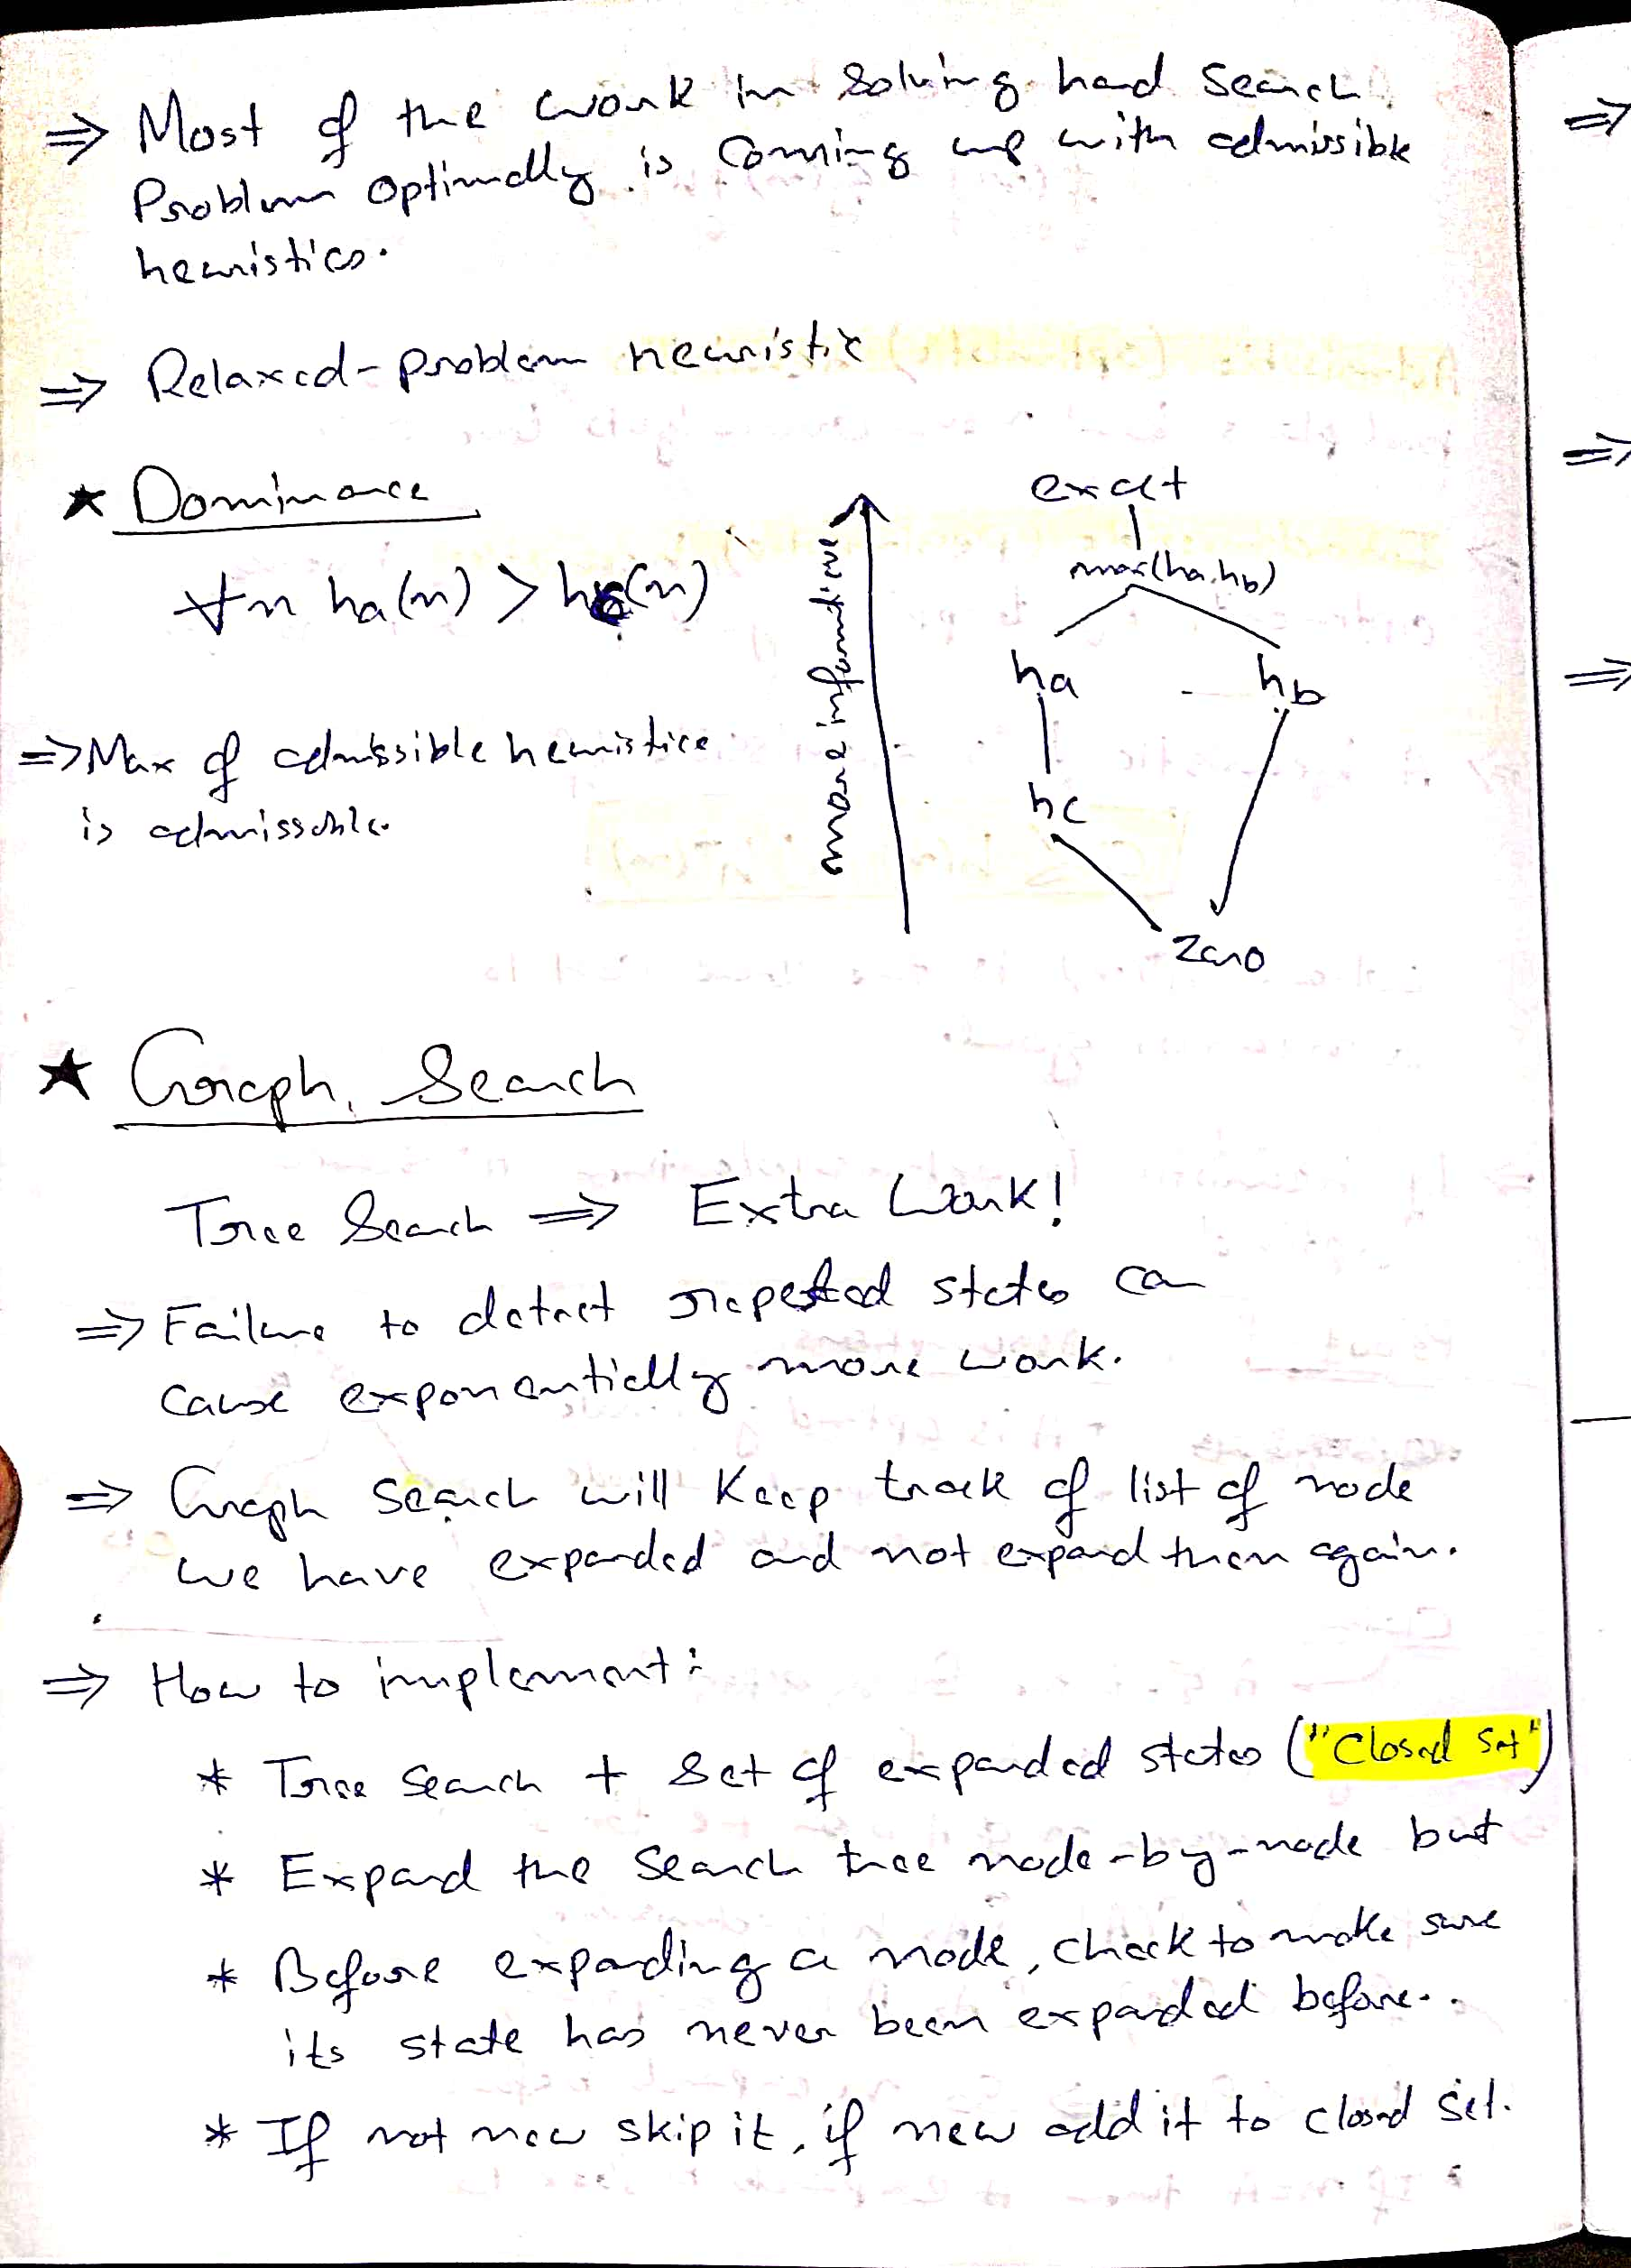 ⇒ Most of the work in solving hard search
Problem optimally is coming up with admissible
heuristics.
⇒ Relaxed-problem heuristic
★ Dominance
∀n ha(n) > hc(n)
⇒ Max of admissible heuristice
is admissable.
more informative
exact
max(ha, hb)
ha
hb
hc
zero
★ Graph Search
Tree Search ⇒ Extra Work!
⇒ Failure to detect repeated states can
cause exponentially more work.
⇒ Graph search will keep track of list of node
we have expanded and not expand them again.
⇒ How to implement:
* Tree search + set of expanded states ("Closed set")
* Expand the search tree node-by-node but
* Before expanding a node, check to make sure
its state has never been expanded before..
* If not new skip it, if new add it to closed set.
⇒
⇒
⇒